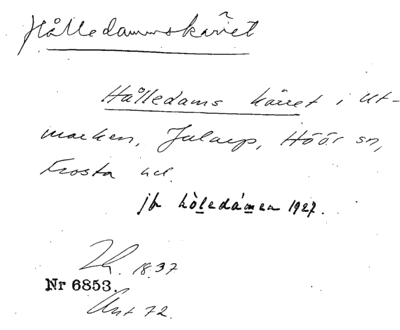 Hålledammskärret
Hålledams kärret i Ut-
marken, Jularp, Höör sn,
Frosta hd.
jfr hòledámen 1927.
18.37
Nr 6853.
72.